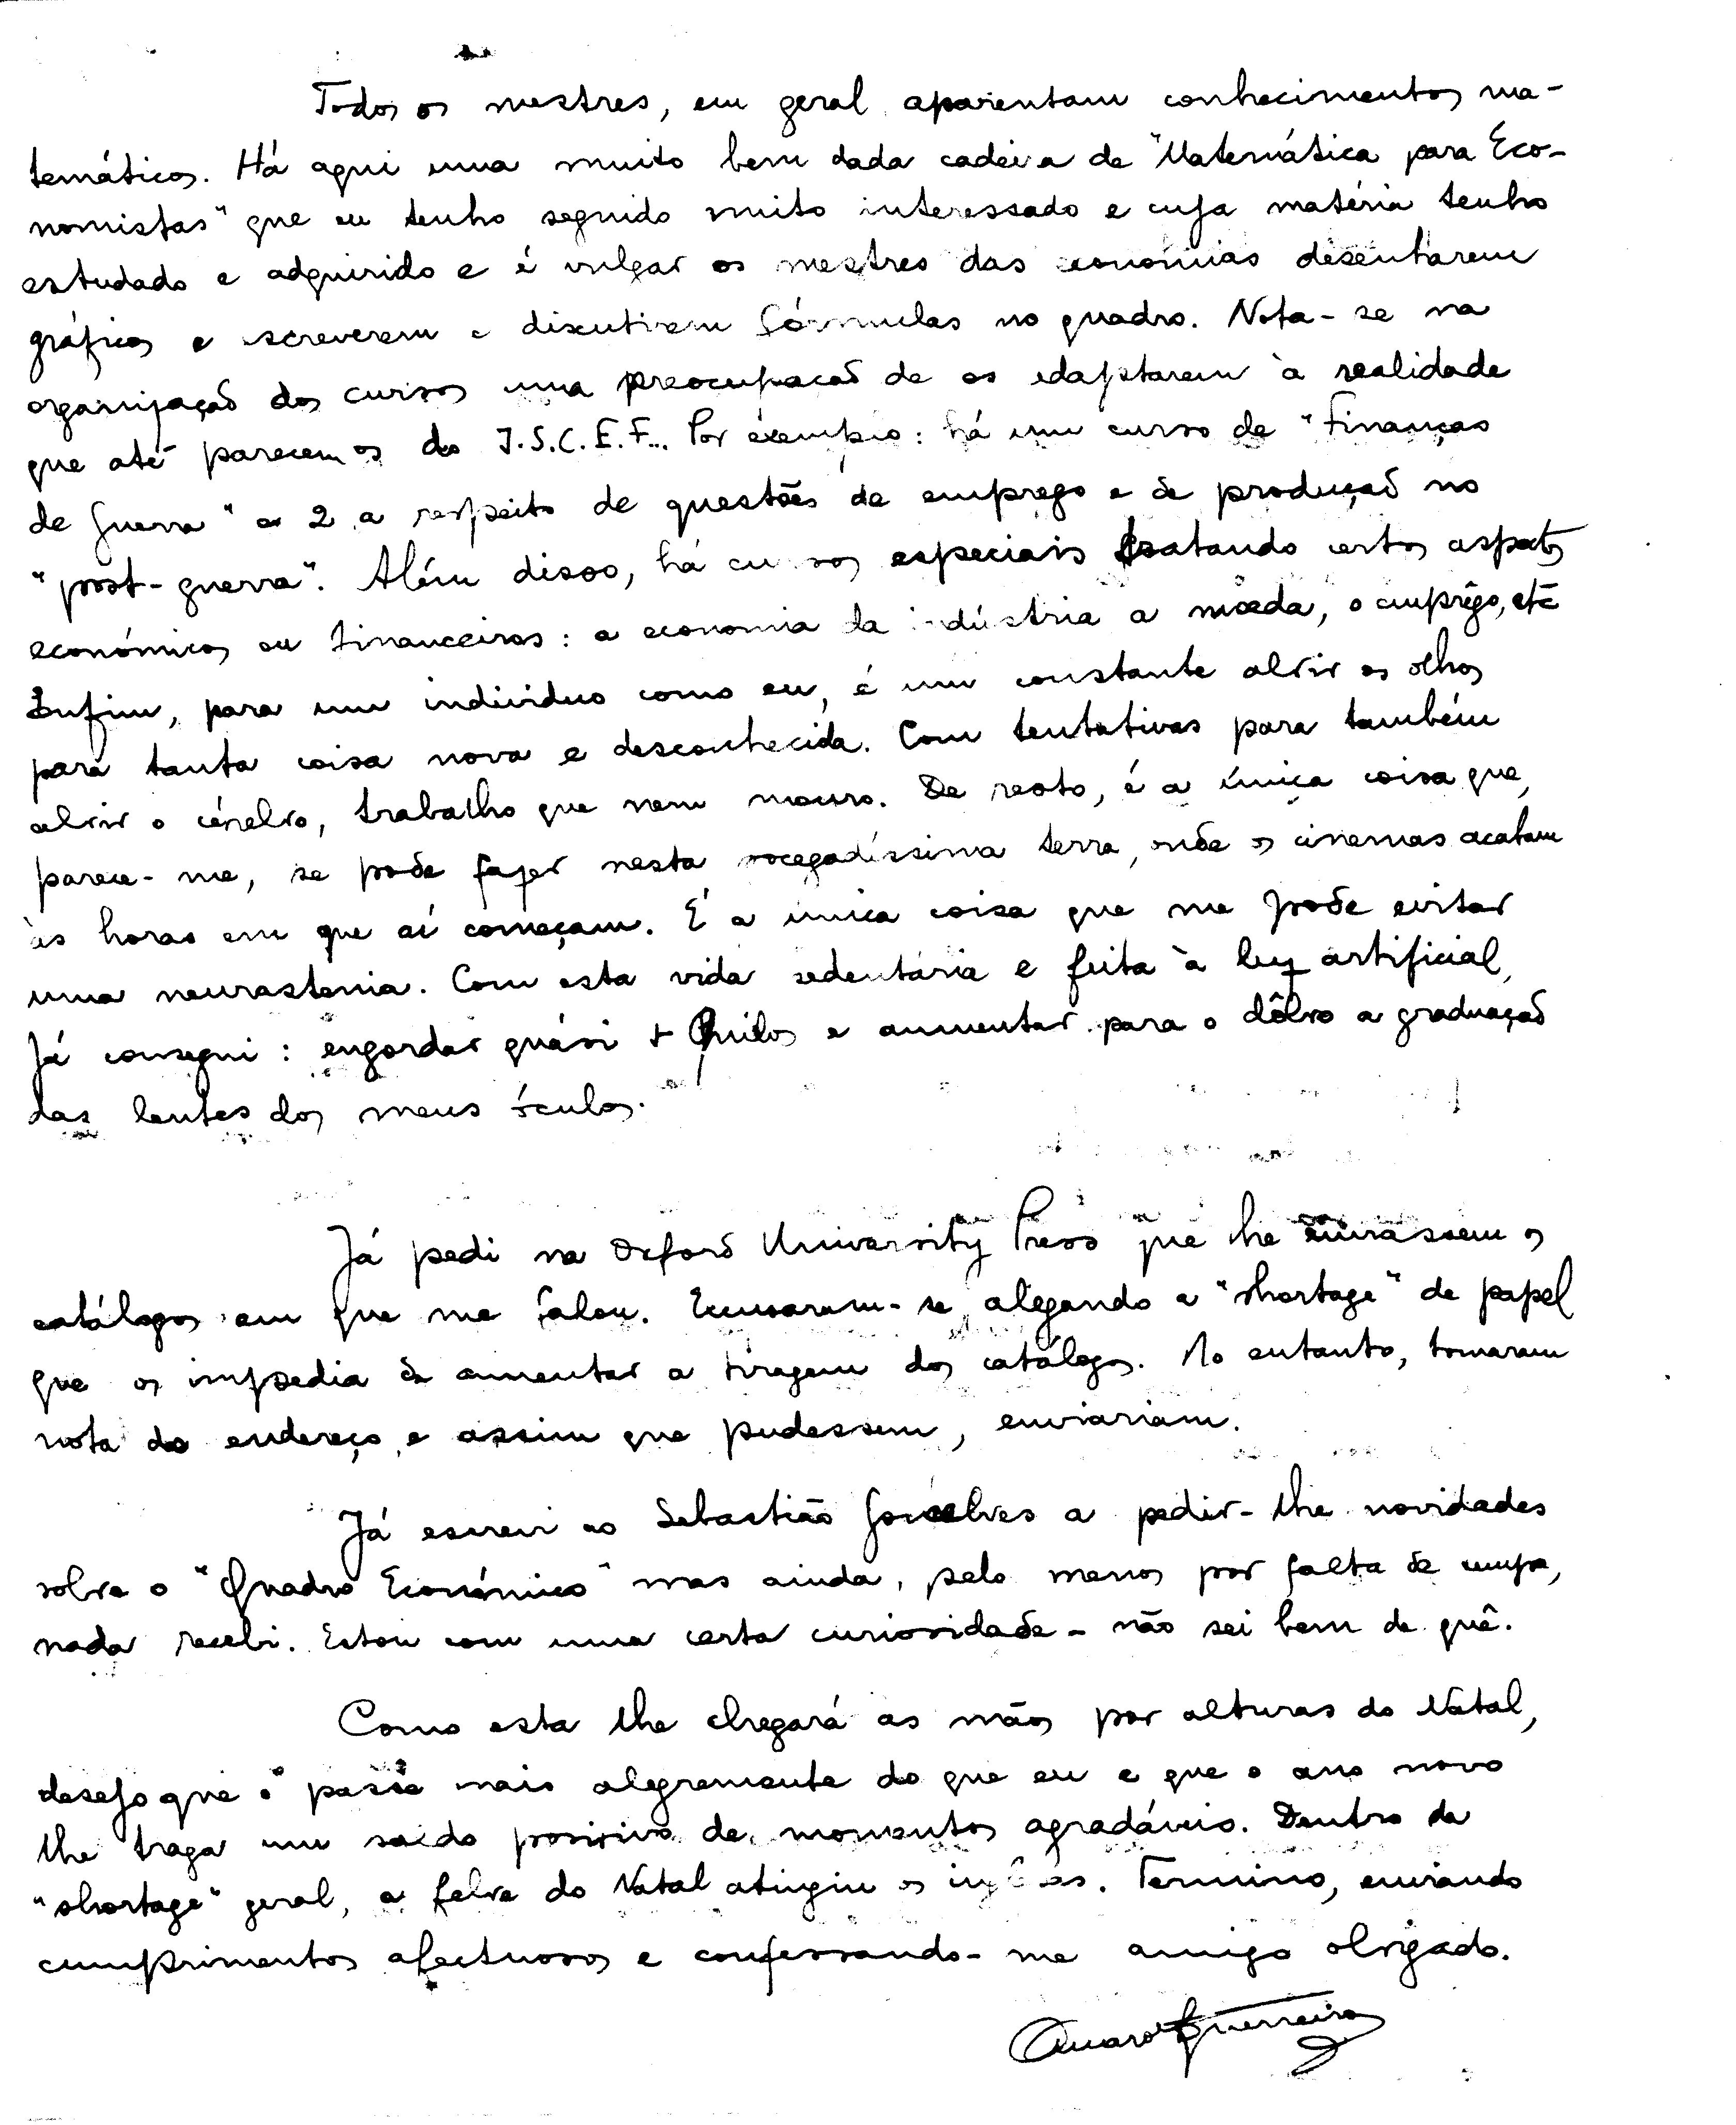 Todos os mestres, em geral aparentam conhecimentos ma-
temáticos. Há aqui uma muito bem dada cadeira de "Matemática para Eco-
nomistas" que eu tenho seguido muito interessado e cuja matéria tenho
estudado e adquirido e é vulgar os mestres das economias desenharem
gráficos e escreverem e discutirem fórmulas no quadro. Nota-se na
organização dos cursos uma preocupação de os adaptarem à realidade
que até parecem os do I.S.C.E.F... Por exemplo: há um curso de "Finanças
de Guerra" e 2 a respeito de questões de emprego e de produção no
"post-guerra". Além disso, há cursos especiais tratando certos aspectos
económicos ou financeiros: a economia da indústria a moeda, o emprêgo, etc
Enfim, para um indivíduo como eu, é um constante abrir os olhos
para tanta coisa nova e desconhecida. Com tentativas para também
abrir o cérebro, trabalho que nem mouro. De resto, é a única coisa que,
parece-me, se pode fazer nesta socegadíssima terra, onde os cinemas acabam
às horas em que aí começam. É a única coisa que me pode evitar
uma neurastenia. Com esta vida sedentária e feita à luz artificial,
já consegui: engordar quási + Quilos e aumentar para o dôbro a graduação
das lentes dos meus óculos.
Já pedi na Oxford University Press que lhe enviassem os
catálogos em que me falou. Escusaram-se alegando a "shortage" de papel
que os impedia de aumentar a tiragem dos catálogos. No entanto, tomaram
nota do endereço e assim que pudessem, enviariam.
Já escrevi ao Sebastião Gonçalves a pedir-lhe novidades
sobre o "Quadro Económico" mas ainda, pelo menos por falta de
nada recebi. Estou com uma certa curiosidade - não sei bem de quê.
Como esta lhe chegará as mãos por alturas do Natal,
desejo que o passe mais alegremente do que eu e que o ano novo
lhe traga um saldo positivo de momentos agradáveis. Dentro da
"shortage" geral, a febre do Natal atingiu os inglêses. Termino, enviando
cumprimentos afectuosos e confessando-me amigo obrigado.
Amaro Guerreiro